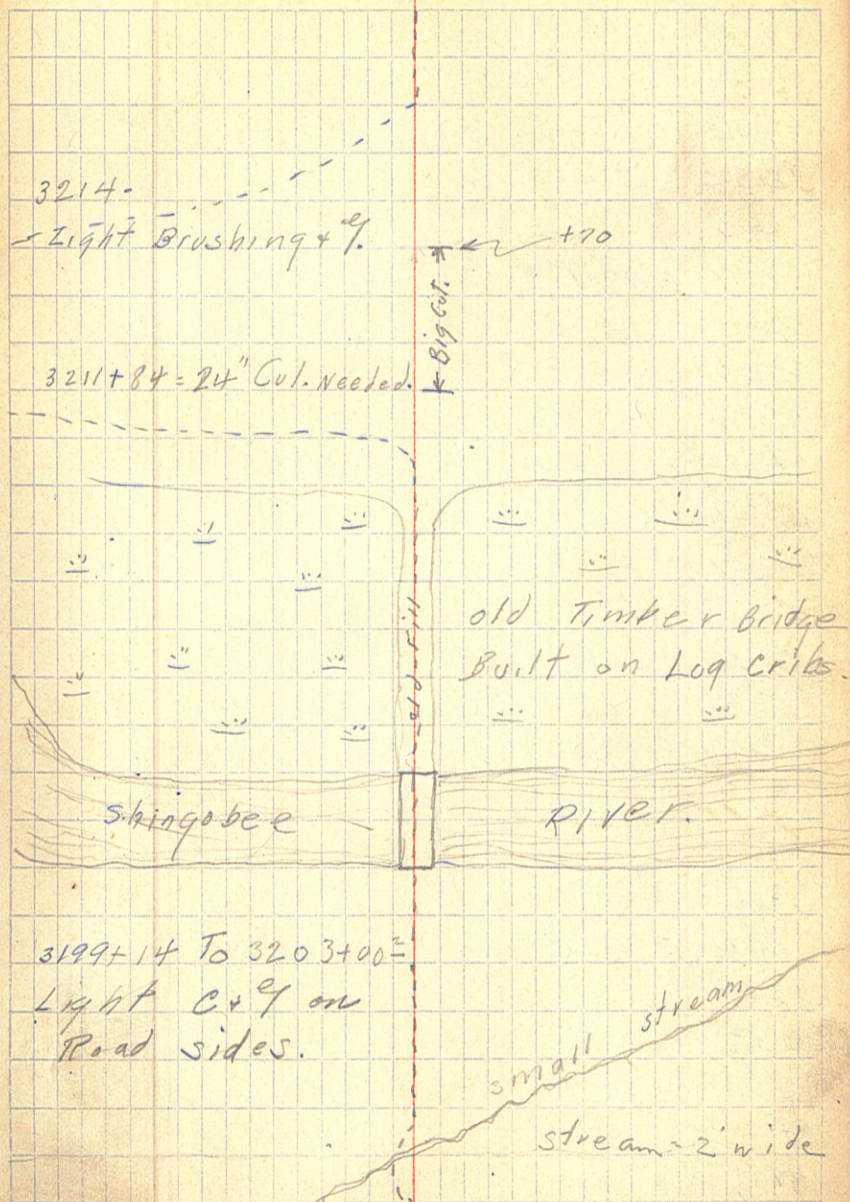 3214-
Light Brushing +
+70
Big Cut.
3211+84 = 24" Cul. Needed.
old Fill
old Timber Bridge
Built on Log Cribs.
Shingobee River.
3199+14 To 3203+00=
Light C + on
Road sides.
small stream
stream = 2' wide